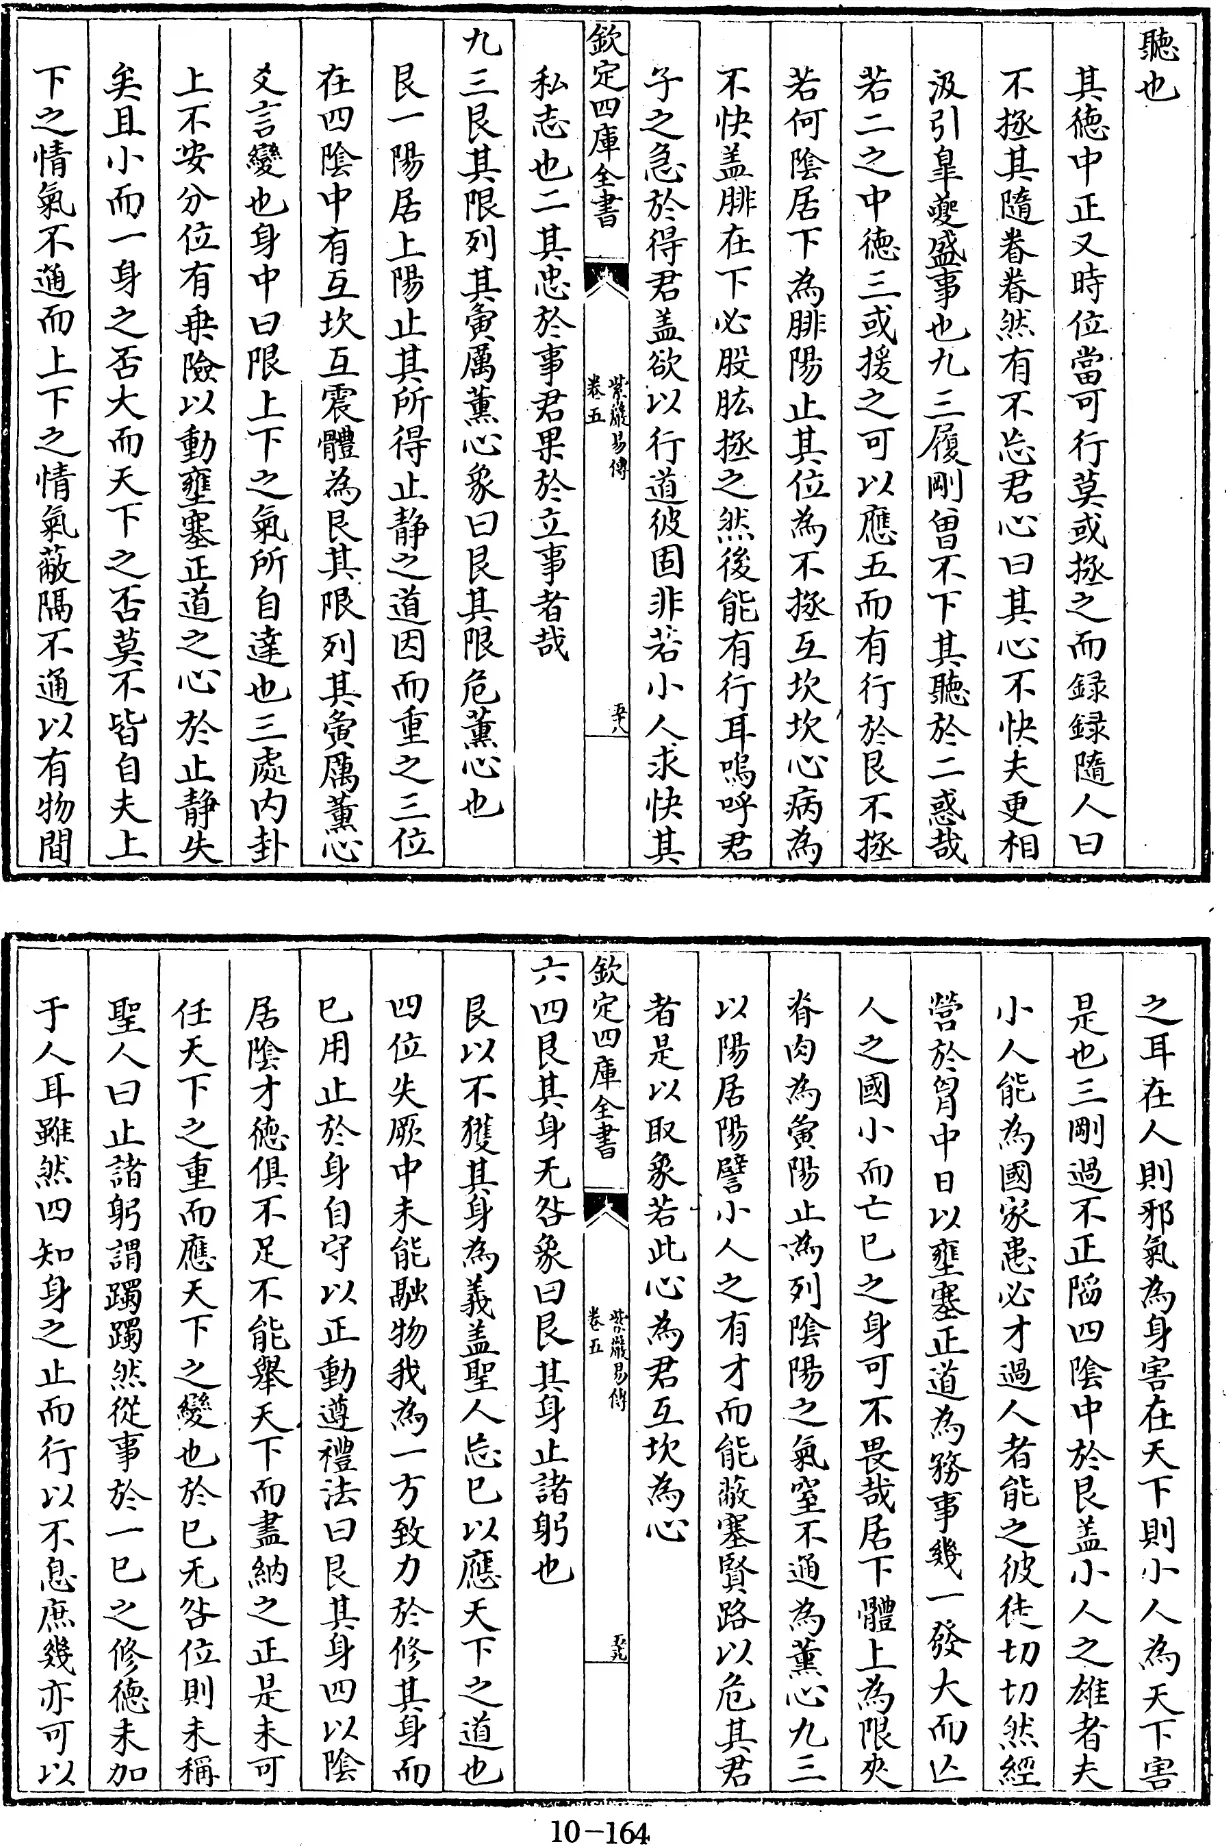 聽也
其徳中正又時位當可行莫或拯之而録録隨人曰
不拯其隨眷眷然有不忘君心曰其心不快夫更相
汲引臯夔盛事也九三履剛曾不下其聽於二惑哉
若二之中徳三或援之可以應五而有行於艮不拯
若何陰居下為腓陽止其位為不拯互坎坎心病為
不快盖腓在下必股肱拯之然後能有行耳嗚呼君
子之急於得君盖欲以行道彼固非若小人求快其
欽定四庫全書
紫巖易傳
卷五
五十八
私志也二其忠於事君果於立事者哉
九三艮其限列其夤厲薫心象曰艮其限危薫心也
艮一陽居上陽止其所得止静之道因而重之三位
在四陰中有互坎互震體為艮其限列其夤厲薫心
爻言變也身中曰限上下之氣所自達也三處内卦
上不安分位有乗險以動壅塞正道之心於止静失
矣且小而一身之否大而天下之否莫不皆自夫上
下之情氣不通而上下之情氣蔽隔不通以有物間
之耳在人則邪氣為身害在天下則小人為天下害
是也三剛過不正陷四陰中於艮盖小人之雄者夫
小人能為國家患必才過人者能之彼徒切切然經
營於胷中日以壅塞正道為務事幾一發大而亾
人之國小而亡已之身可不畏哉居下體上為限夾
脊肉為夤陽止為列陰陽之氣窒不通為薫心九三
以陽居陽譬小人之有才而能蔽塞賢路以危其君
者是以取象若此心為君互坎為心
欽定四庫全書
紫巖易傳
卷五
五十九
六四艮其身无咎象曰艮其身止諸躬也
艮以不獲其身為義盖聖人忘已以應天下之道也
四位失厥中未能融物我為一方致力於修其身而
已用止於身自守以正動遵禮法曰艮其身四以陰
居陰才徳俱不足不能舉天下而盡納之正是未可
任天下之重而應天下之變也於已无咎位則未稱
聖人曰止諸躬謂躅躅然從事於一已之修徳未加
于人耳雖然四知身之止而行以不息庶幾亦可以
10-164